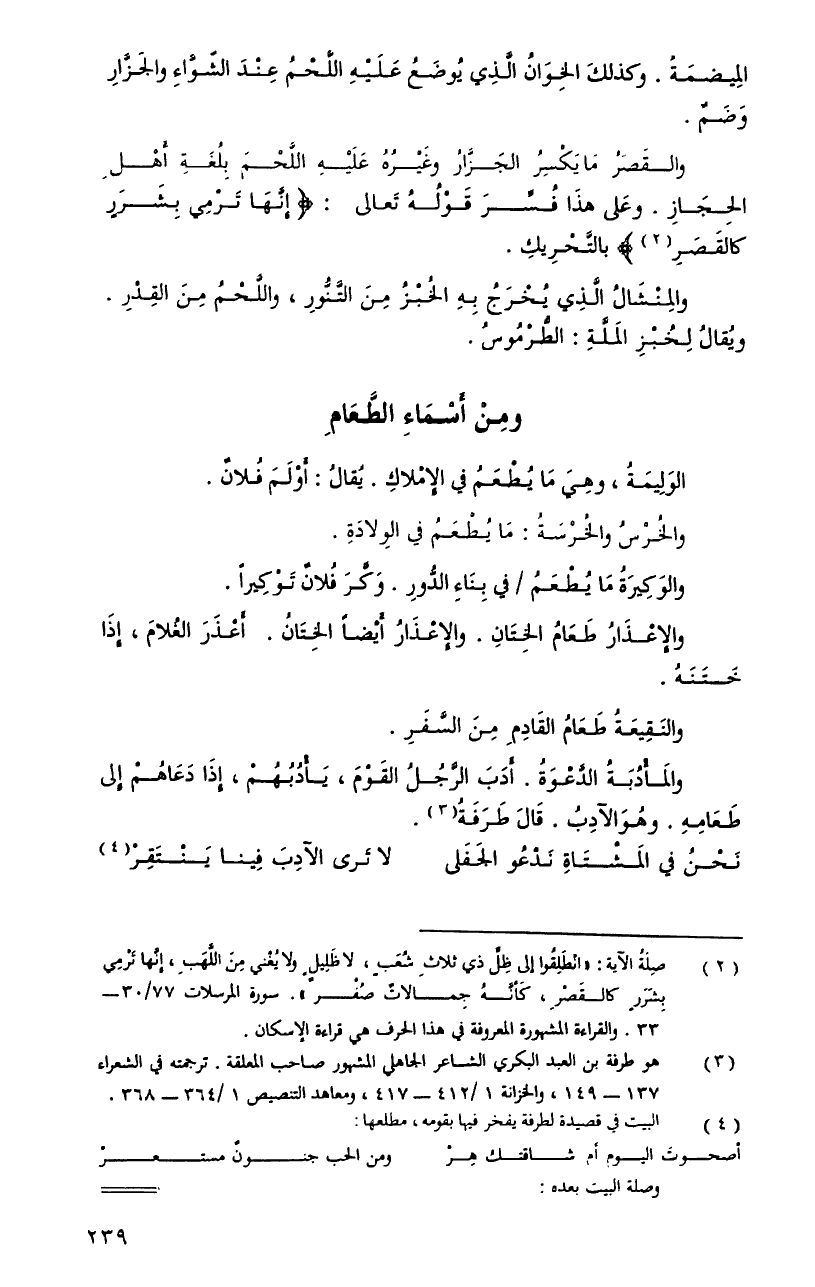 المِيضَمَةُ . وكذلكَ الخِوَانُ الَّذِي يُوضَعُ عَلَيْهِ اللَّحْمُ عِنْدَ الشَّوَّاءِ والجَزَّارِ
وَضَمٌ .
والقَصَرُ مَا يَكْسِرُ الجَزَّارُ وغَيْرُهُ عَلَيْهِ اللَّحْمَ بِلُغَةِ أَهْلِ
الحِجَازِ . وعَلى هذَا فُسِّرَ قَوْلُهُ تَعالى : ﴿ إنَّهَا تَرْمِي بِشَرَرٍ
كالقَصَرِ(٢) ﴾ بالتَّحْرِيكِ .
والمِنْشَالُ الَّذِي يُخْرَجُ بِهِ الخُبْزُ مِنَ التَّنُّورِ ، واللَّحْمُ مِنَ القِدْرِ .
ويُقالُ لِخُبْزِ المَلَّةِ : الطُّرْمُوسُ .
ومِنْ أَسْمَاءِ الطَّعَامِ
الوَلِيمَةُ ، وهِيَ مَا يُطْعَمُ في الإمْلاكِ . يُقالُ : أَوْلَمَ فُلانٌ .
والخُرْسُ والخُرْسَةُ : مَا يُطْعَمُ في الوِلادَةِ .
والوَكِيرَةُ مَا يُطْعَمُ / في بِنَاءِ الدُّورِ . وَكَّرَ فُلانٌ تَوْكِيراً .
والإعْذَارُ طَعَامُ الخِتَانِ . والإعْذَارُ أَيْضاً الخِتَانُ . أَعْذَرَ الغُلامَ ، إذَا
خَتَنَهُ .
والنَقِيعَةُ طَعَامُ القَادِمِ مِنَ السَّفَرِ .
والمَأْدُبَةُ الدَّعْوَةُ . أَدَبَ الرَّجُلُ القَوْمَ ، يَأْدُبُهُمْ ، إذَا دَعَاهُمْ إلى
طَعَامِهِ . وهُوَ الآدِبُ . قَالَ طَرَفَةُ(٣) .
نَحْنُ في المَشْتَاةِ نَدْعُو الجَفَلى لا تَرى الآدِبَ فِينا يَنْتَقِرْ(٤)
(٢) صِلَةُ الآية : «انْطَلِقُوا إلى ظِلٍّ ذي ثلاثِ شُعَبٍ ، لا ظَلِيلٍ ولا يُغْني مِنَ اللَّهَبِ ، إنَّها تَرْمِي
بِشَرَرٍ كالقَصْرِ ، كَأَنَّهُ جِمالاتٌ صُفْر » . سورة المرسلات ٣٠/٧٧ –
٣٣ . والقراءة المشهورة المعروفة في هذا الحرف هي قراءة الإسكان .
(٣) هو طرفة بن العبد البكري الشاعر الجاهلي المشهور صاحب المعلقة . ترجمته في الشعراء
١٣٧ – ١٤٩ ، والخزانة ١ /٤١٢ – ٤١٧ ، ومعاهد التنصيص ١ /٣٦٤ – ٣٦٨ .
(٤) البيت في قصيدة لطرفة يفخر فيها بقومه ، مطلعها :
أصحوتَ اليوم أم شاقتك هِرْ ومن الحب جنونٌ مستعرْ
وصلة البيت بعده :
٢٣٩